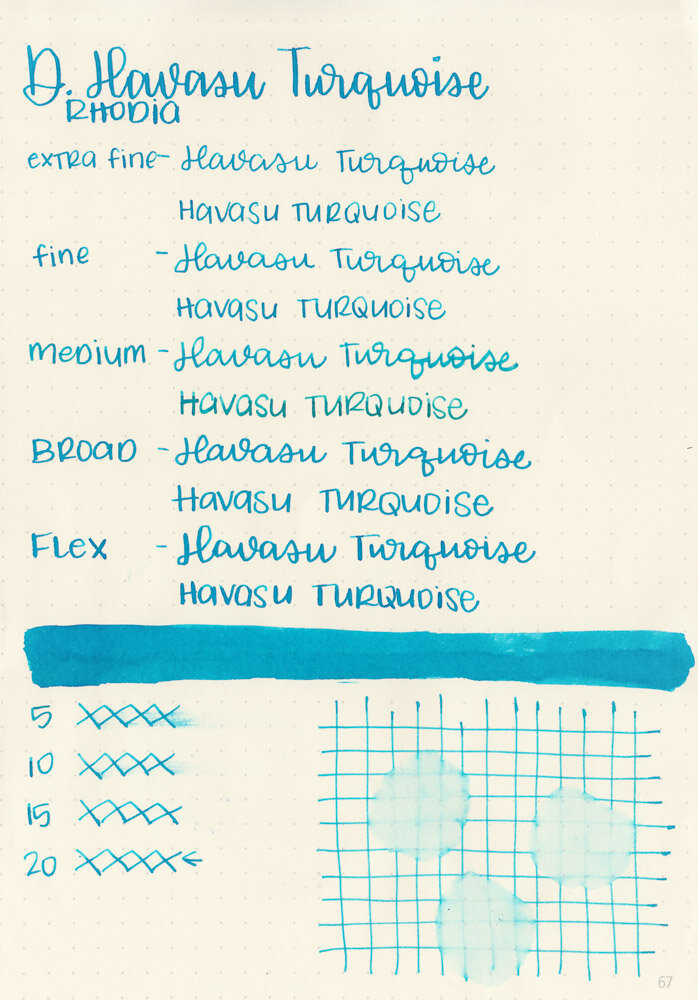 D. Havasu Turquoise
RHODIA
extra fine- Havasu Turquoise
Havasu Turquoise
fine - Havasu Turquoise
Havasu Turquoise
medium - Havasu Turquoise
Havasu Turquoise
BROAD - Havasu Turquoise
Havasu Turquoise
Flex - Havasu Turquoise
Havasu Turquoise
5 XXXX
10 XXXX
15 XXXX
20 XXXX←
67